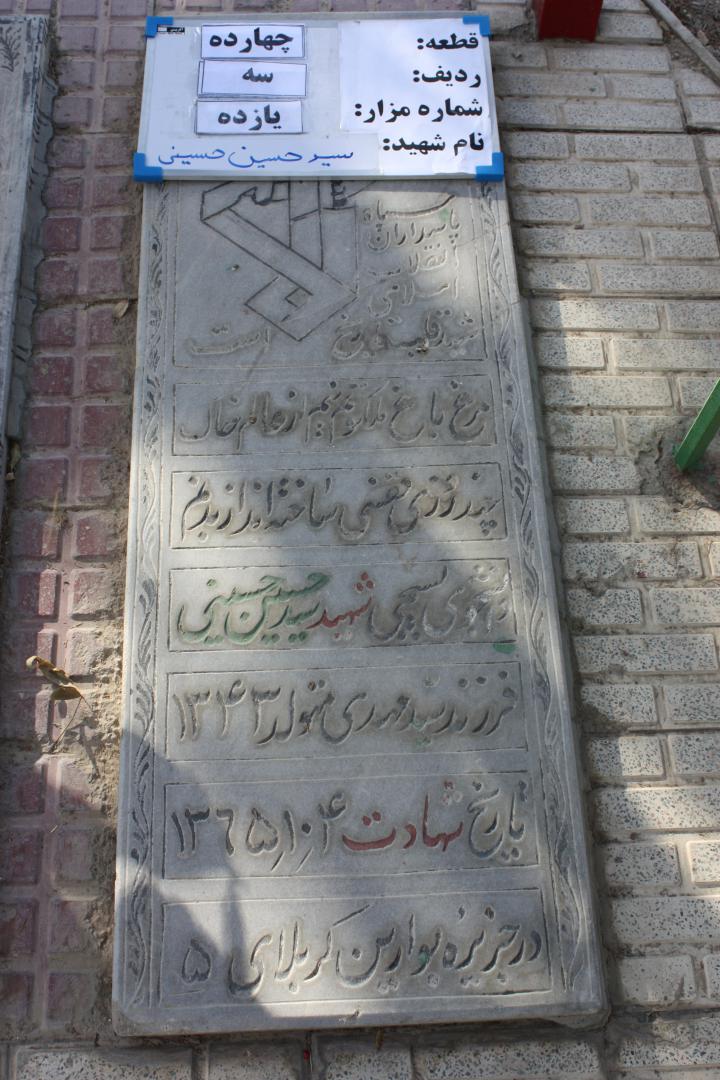 قطعه: چهارده
ردیف: سه
شماره مزار: یازده
نام شهید: سید حسین حسینی
سپاه
پاسداران
انقلاب
اسلامی
شهید قلب تاریخ است
مرغ باغ ملکوتم نیم از عالم خاک
چند روزی قفسی ساخته اند از بدنم
دانشجوی بسیجی شهید سید حسین حسینی
فرزند سید مهدی متولد ۱۳۴۳
تاریخ شهادت ۱۳۶۵٫۱۰٫۴
در جزیزه بوارین کربلای ۵